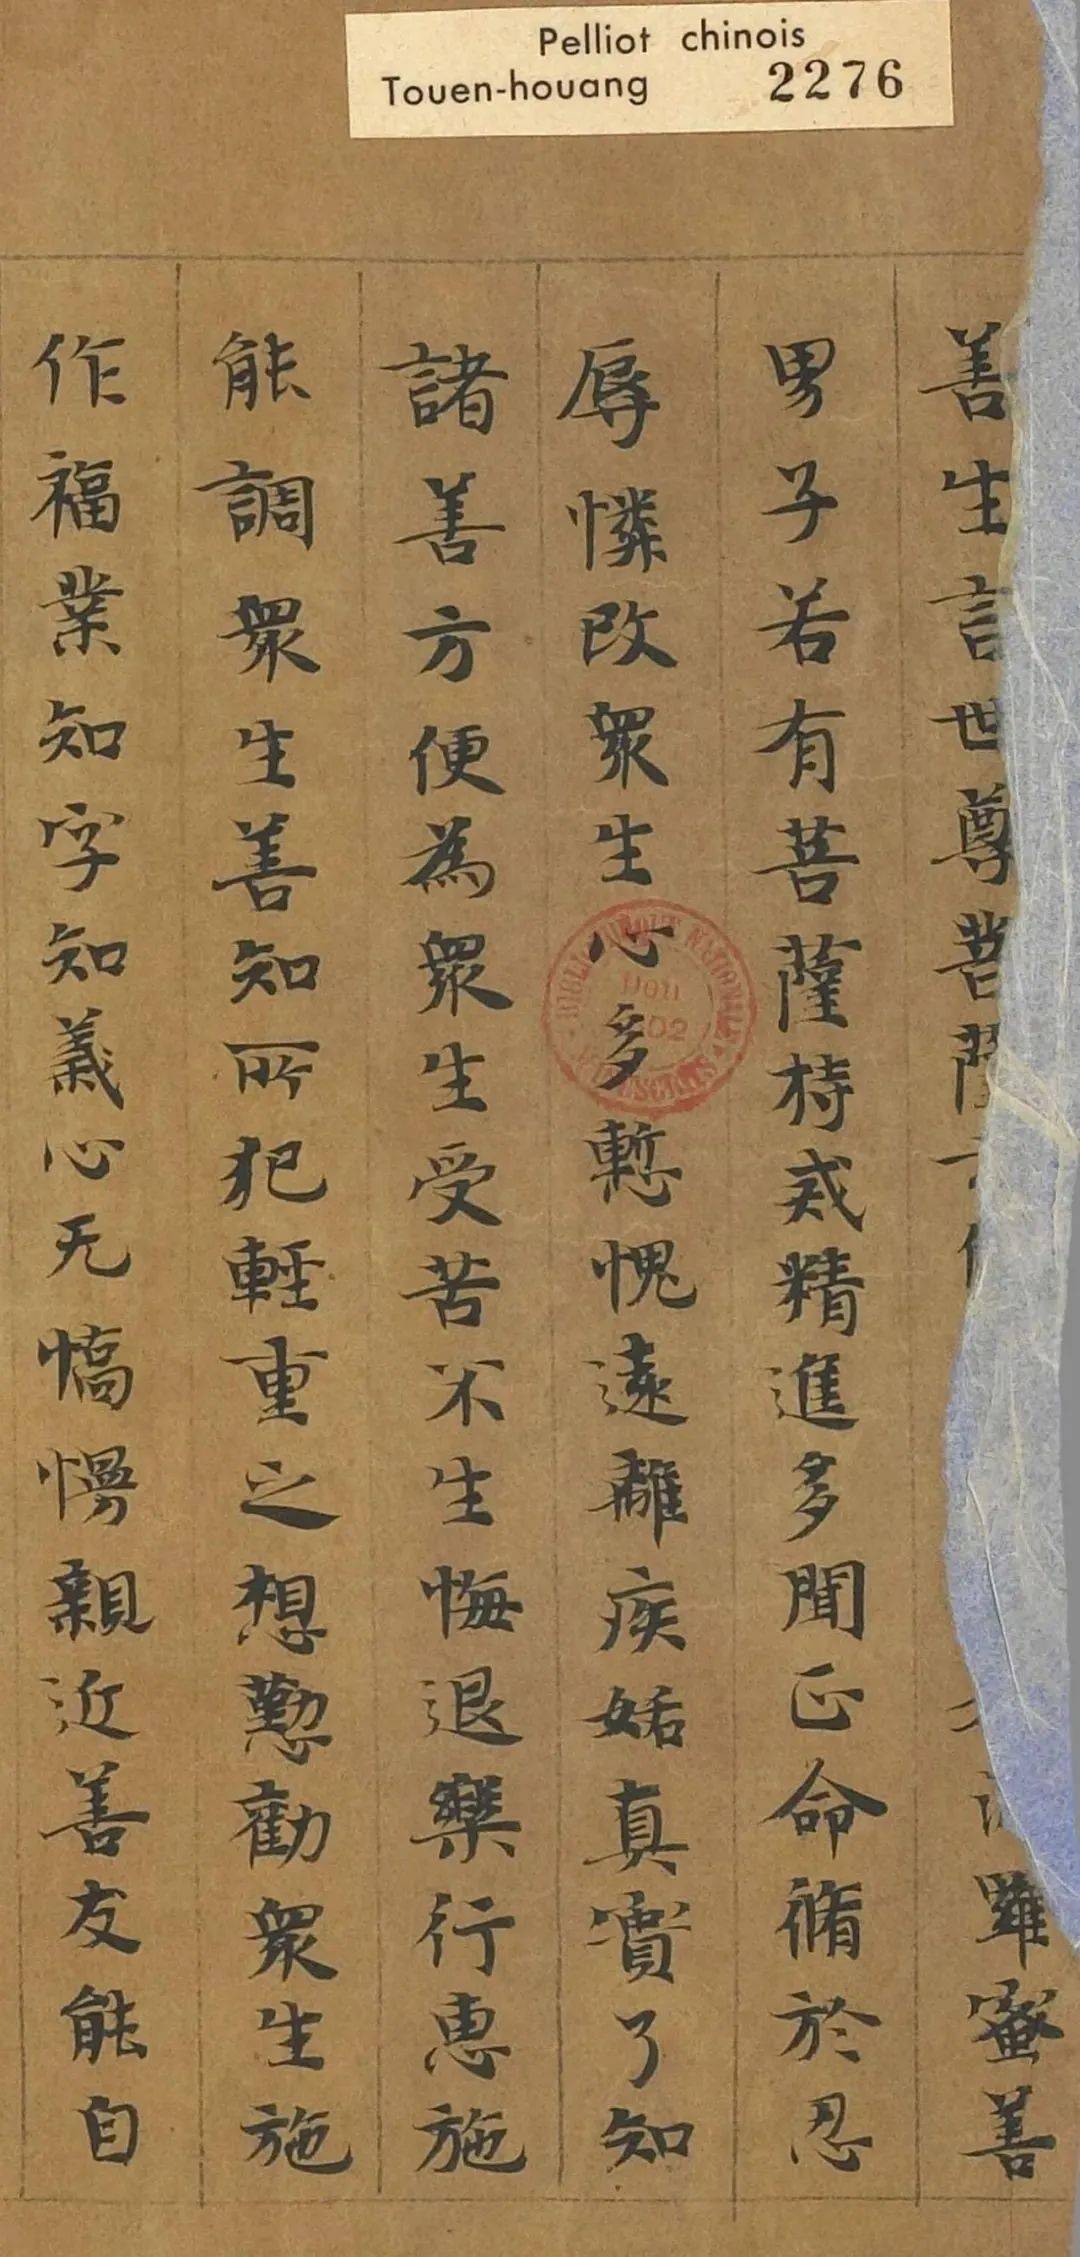 Pelliot chinois
Touen-houang 2276
善生言世尊菩薩雖蜜善
男子若有菩薩持戒精進多聞正命脩於忍
辱憐改眾生心多慙愧遠離疾妬真實了知
諸善方便為眾生受苦不生悔退樂行惠施
能調眾生善知所犯輕重之想懃勸眾生施
作福業知字知義心无憍慢親近善友能自